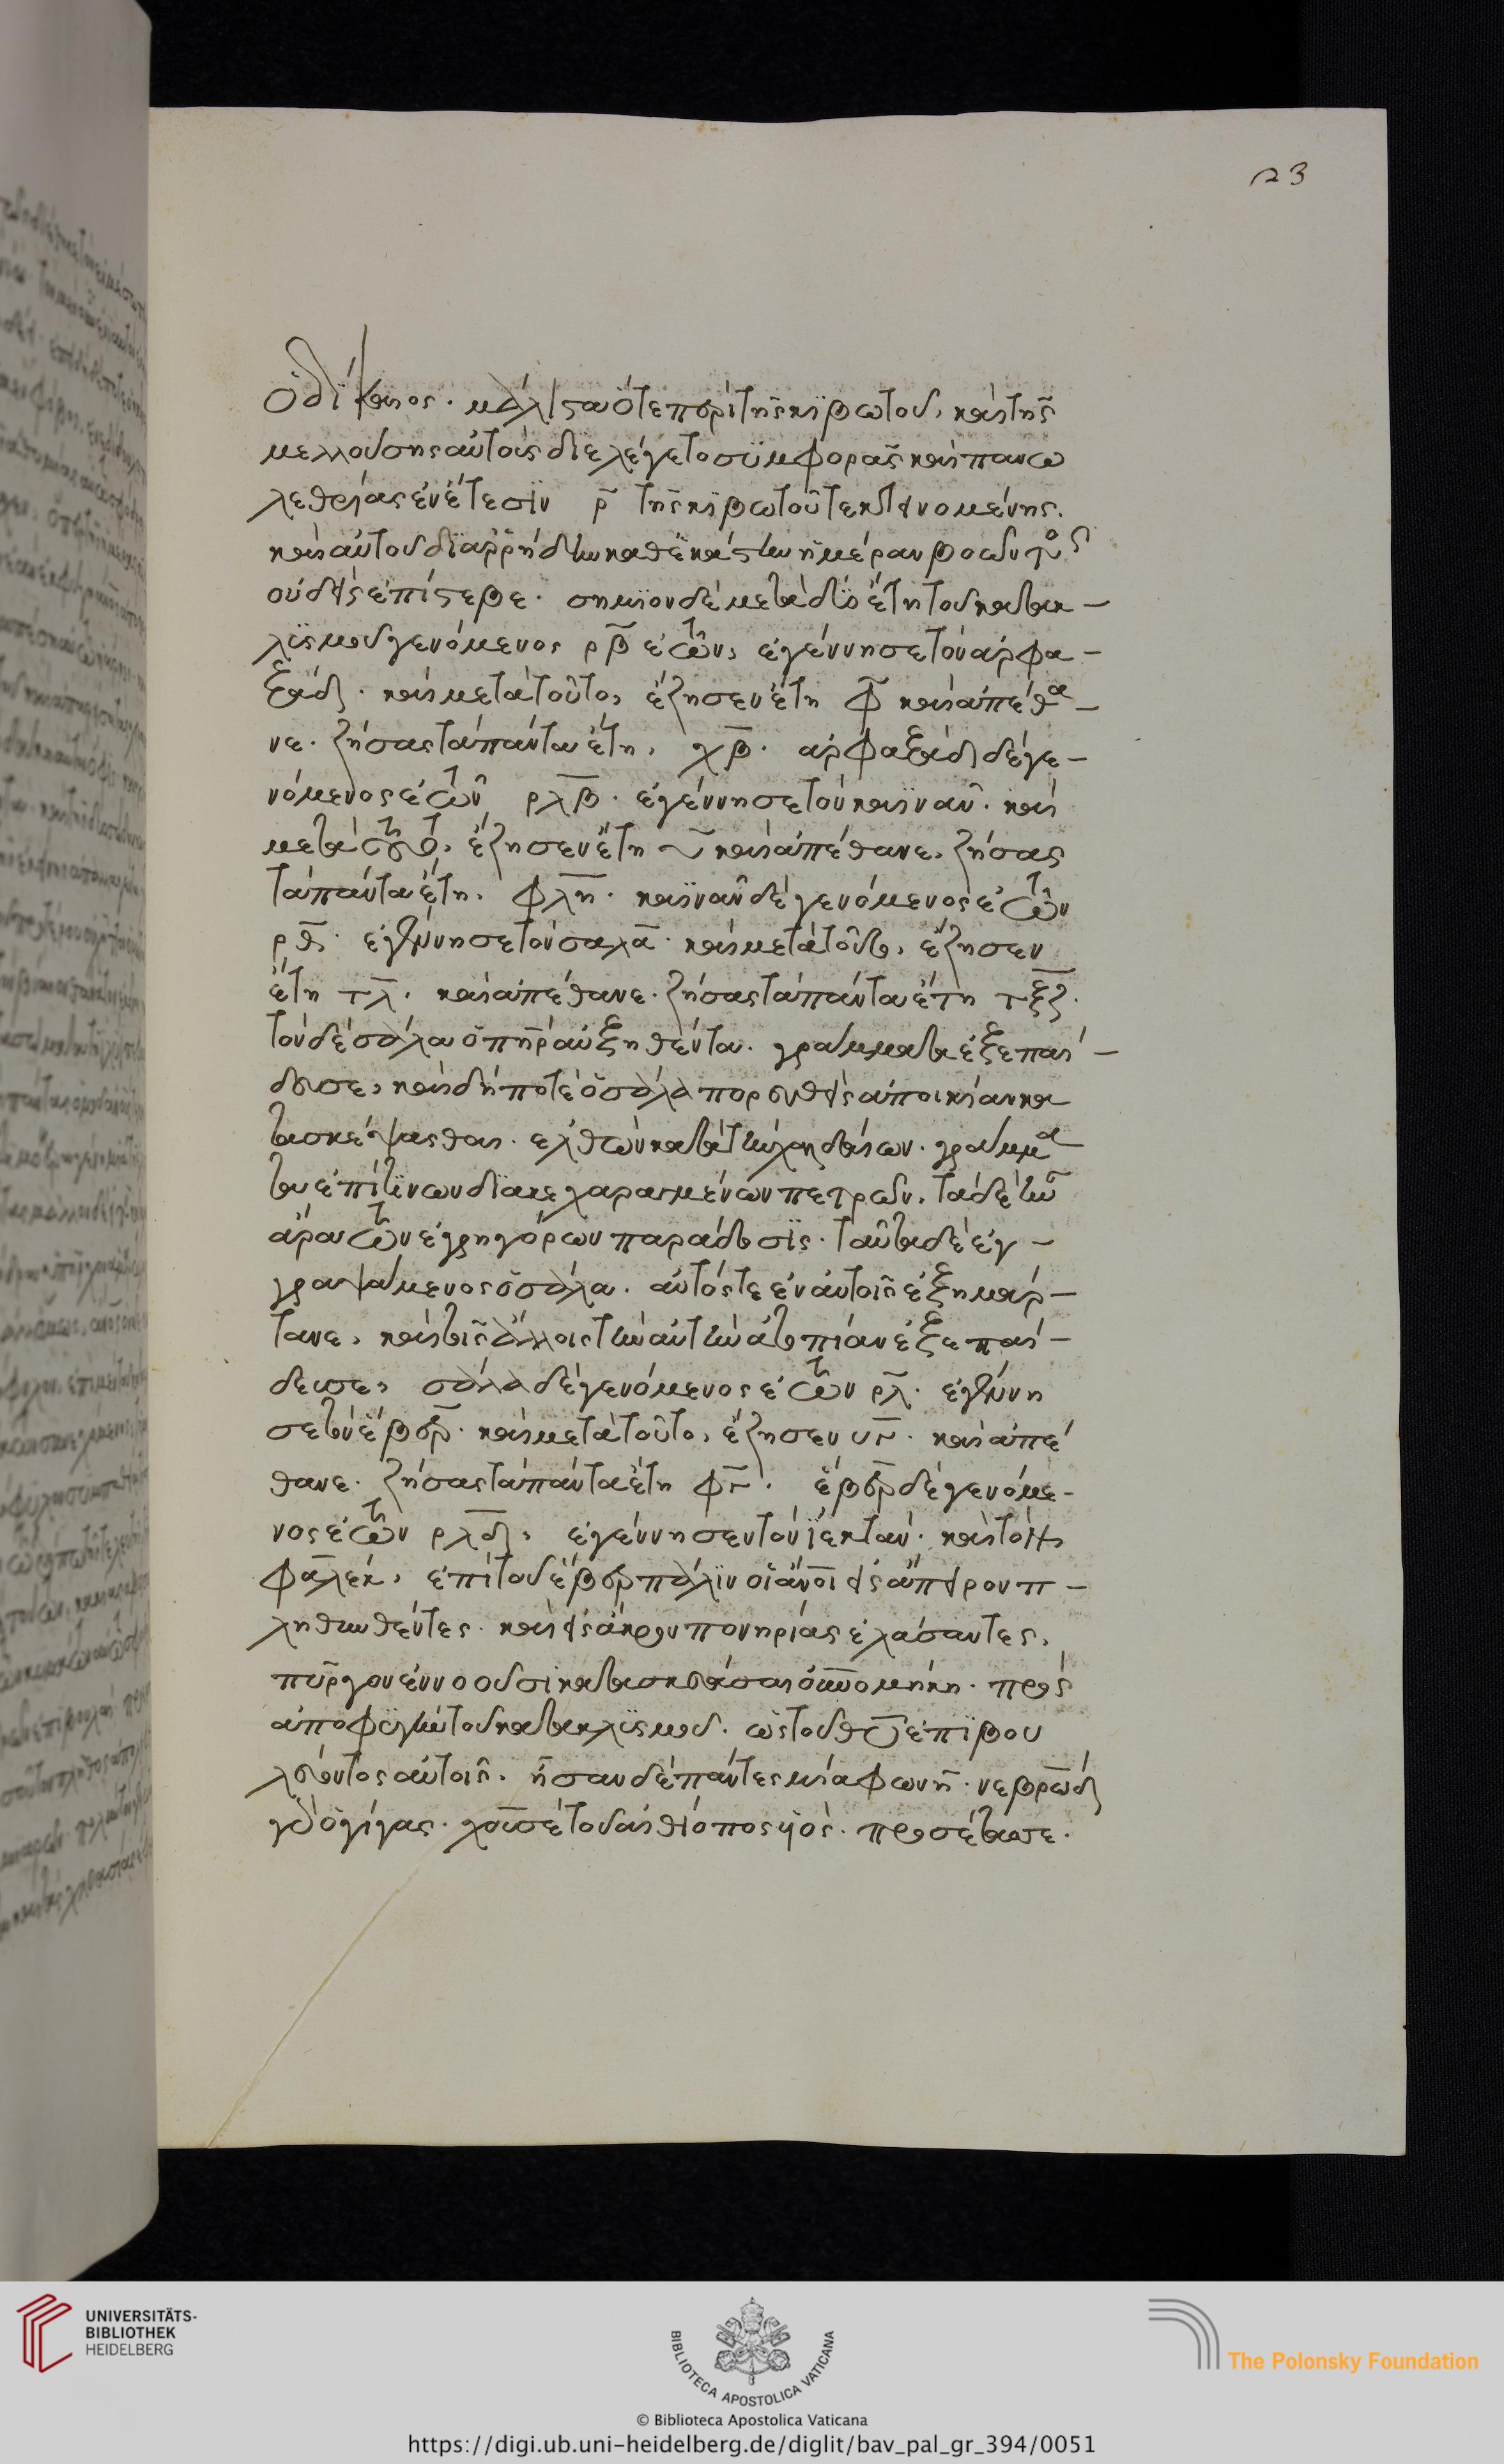 23
ὁ δίκαιος. μάλιστα ὅτε περὶ τῆς κϊβωτοῦ, καὶ τῆς
μελλούσης αὐτοῖς διελέγετο συμφορᾶς καὶ πανω
λεθρίας ἐν ἔτεσϊν ρ̅ τῆς κϊβωτοῦ τεκταινομένης.
καὶ αὐτοῦ δϊαρρήδην καθ ἑκάστην ἡμέραν βοῶντος
οὐδεὶς ἐπίστευε. σημ δὲ μετὰ δύο ἔτη τοῦ κατακ-
λϊσμοῦ γενόμενος ρ̅β̅ ἐτῶν, ἐγέννησε τὸν ἀρφα-
ξάδ. καὶ μετὰ τοῦτο, ἔζησεν ἔτη φ̅ καὶ ἀπέθα-
νε. ζήσας τὰ πάντα ἔτη, χ̅β̅. ἀρφαξάδ δὲ γε-
νόμενος ἐτῶν ρ̅λ̅β̅. ἐγέννησε τὸν καϊναν̑. καὶ
μετὰ τοῦτο, ἔζησεν ἔτη υ̅ καὶ ἀπέθανε, ζήσας
τὰ πάντα ἔτη, φ̅λ̅η̅. καϊναν̑ δὲ γενόμενος ἐτῶν
ρ̅θ̅. ἐγέννησε τὸν σαλᾶ. καὶ μετὰ τοῦτο, ἔζησεν
ἔτη τ̅λ̅. καὶ ἀπέθανε. ζήσας τὰ πάντα ἔτη τ̅ξ̅ζ̅.
τὸν δὲ σάλα ὁ πηρ̅ αὐξηθέντα. γράμματα ἐξεπαί-
δευσε, καὶ δήποτε ὁ σάλα πορευθεὶς ἀποικίαν κα
τασκέψασθαι. ἐλθὼν κατὰ τὴν χαλδαίων. γράμμα
τα ἐπί τϊνων δϊακεχαραγμένων πετρῶν. τὰ δὲ ἦν
ἄρα τῶν ἐγρηγόρων παράδοσϊς. ταῦτα δὲ ἐγ-
γραψάμενος ὁ σάλα. αὐτός τε ἐν αὐτοῖς ἐξημάρ-
τανε, καὶ τοῖς ἄλλοις τὴν αὐτὴν ἀτοπίαν ἐξεπαί-
δευσε, σάλα δὲ γενόμενος ἐτῶν ρ̅λ̅. ἐγέννη
σε τὸν ἕβερ. καὶ μετὰ τοῦτο, ἔζησεν υ̅ . καὶ ἀπέ
θανε. ζήσας τὰ πάντα ἔτη φ̅ . ἕβερ δὲ γενόμε-
νος ἐτῶν ρ̅λ̅δ̅, ἐγέννησεν τὸν ϊεκτάν. καὶ τὸν
φαλέκ, ἐπὶ τοῦ ἕβερ πάλϊν οἱ ἄν̅οι εἰς ἄπειρον π-
ληθυνθέντες. καὶ εἰς ἄκρον πονηρίας ἐλάσαντες,
πῦργον ἐννοοῦσι κατασκευάσαι οὐ̅νομήκη. πρὸς
ἀποφϋγὴν τοῦ κατακλϊσμοῦ. ὡς τοῦ θ̅υ̅ ἐπϊβου
λεύοντος αὐτοῖς. ἦσαν δὲ πάντες μία φωνὴ. νεβρὼδ
γὰρ ὁ γίγας. χοῦς τοῦ αἰθίοπος υἱὸς. προσέταττε.
UNIVERSITÄTS-
BIBLIOTHEK
HEIDELBERG
BIBLIOTECA APOSTOLICA VATICANA
The Polonsky Foundation
© Biblioteca Apostolica Vaticana
https://digi.ub.uni-heidelberg.de/diglit/bav_pal_gr_394/0051